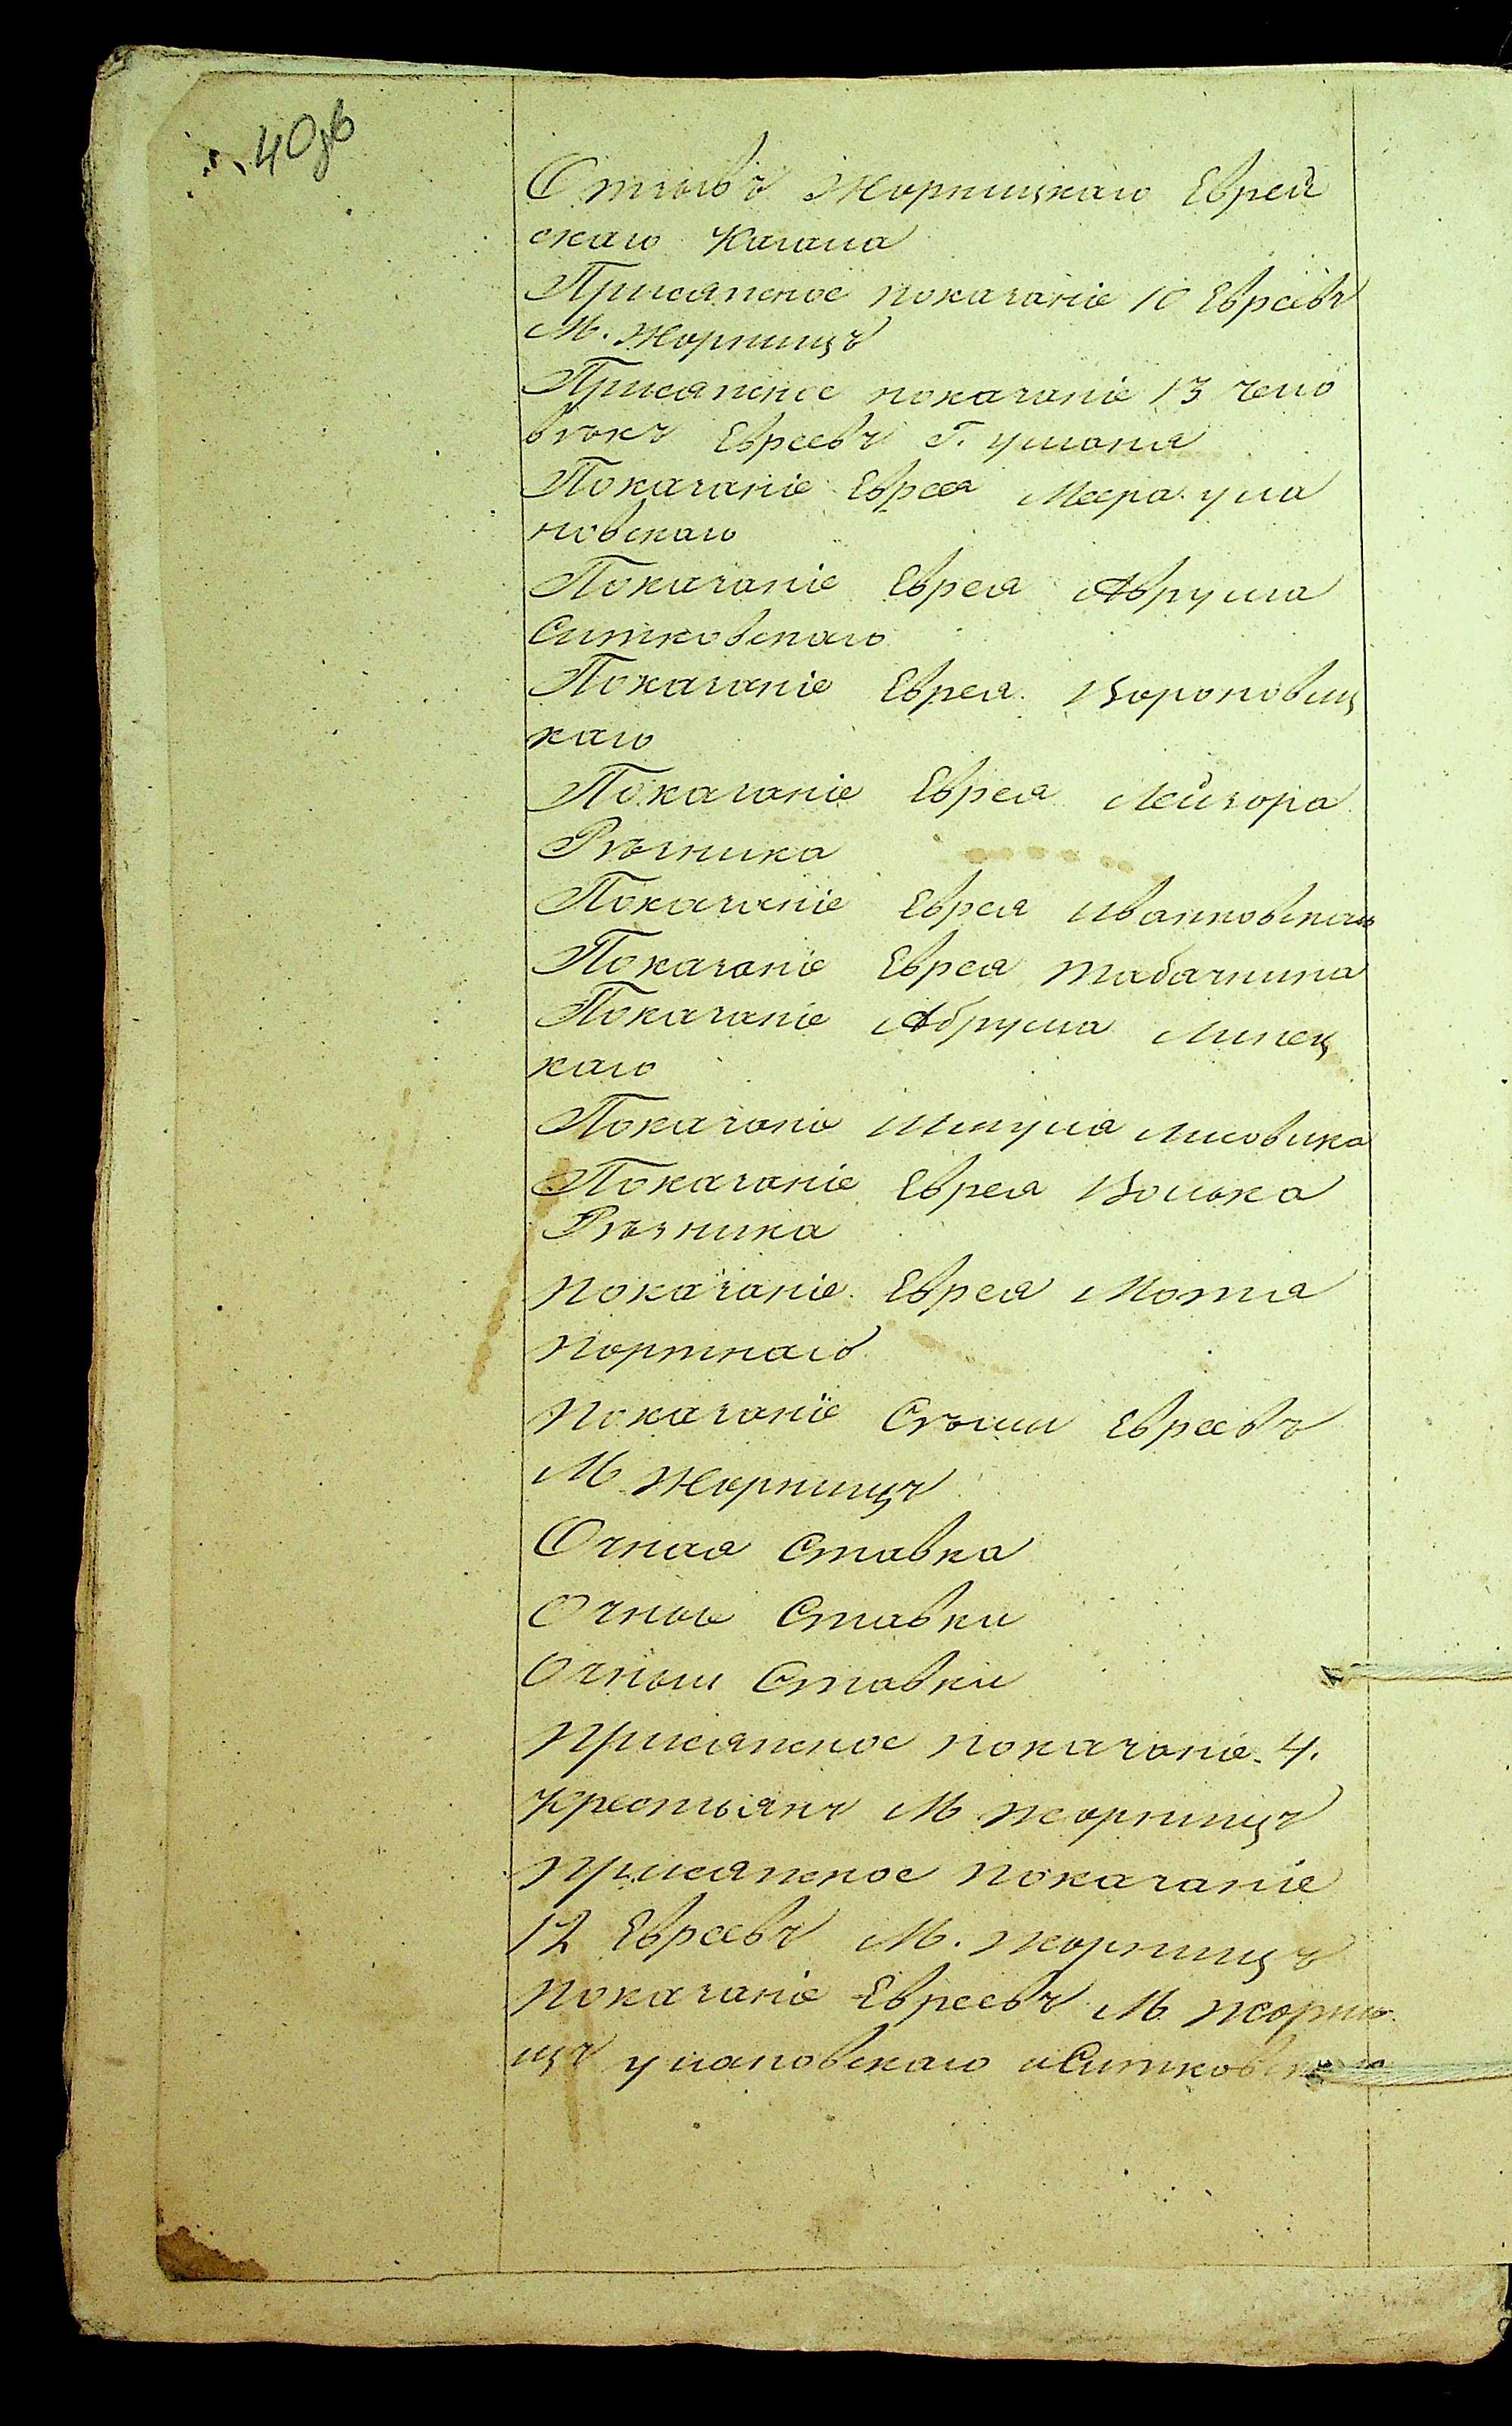 40об
Отзывъ Жорнищкаго Еврей
скаго Кагала
Присяжное показаніе 10 Евреевъ
М. Жорнищъ
Присяжное показаніе 13 чело
вѣкъ Евреевъ Г. Умоня
Показаніе Еврея Меера Ула
новскаго
Показаніе Еврея Аврума
Ситковскаго
Показаніе Еврея Вороновиц
каго
Показаніе Еврея Лейзора
Рѣзника
Показаніе Еврея Иванковскаго
Показаніе Еврея Табачника
Показаніе Абрума Липец
каго
Показаніе Шмуля Лисовика
Показаніе Еврея Волька
Рѣзника
Показаніе Еврея Мотя
Портнаго
Показаніе Евреевъ
М Жорнищъ
Очная Ставка
Очные Ставки
Очныи Ставки
Присяжное показаніе 4.
Крестьянъ М Жорнищъ
Присяжное показаніе
12 Евреевъ М. Жорнищъ
Показаніе Евреевъ М Жорни
щъ Улановскаго и Ситковска